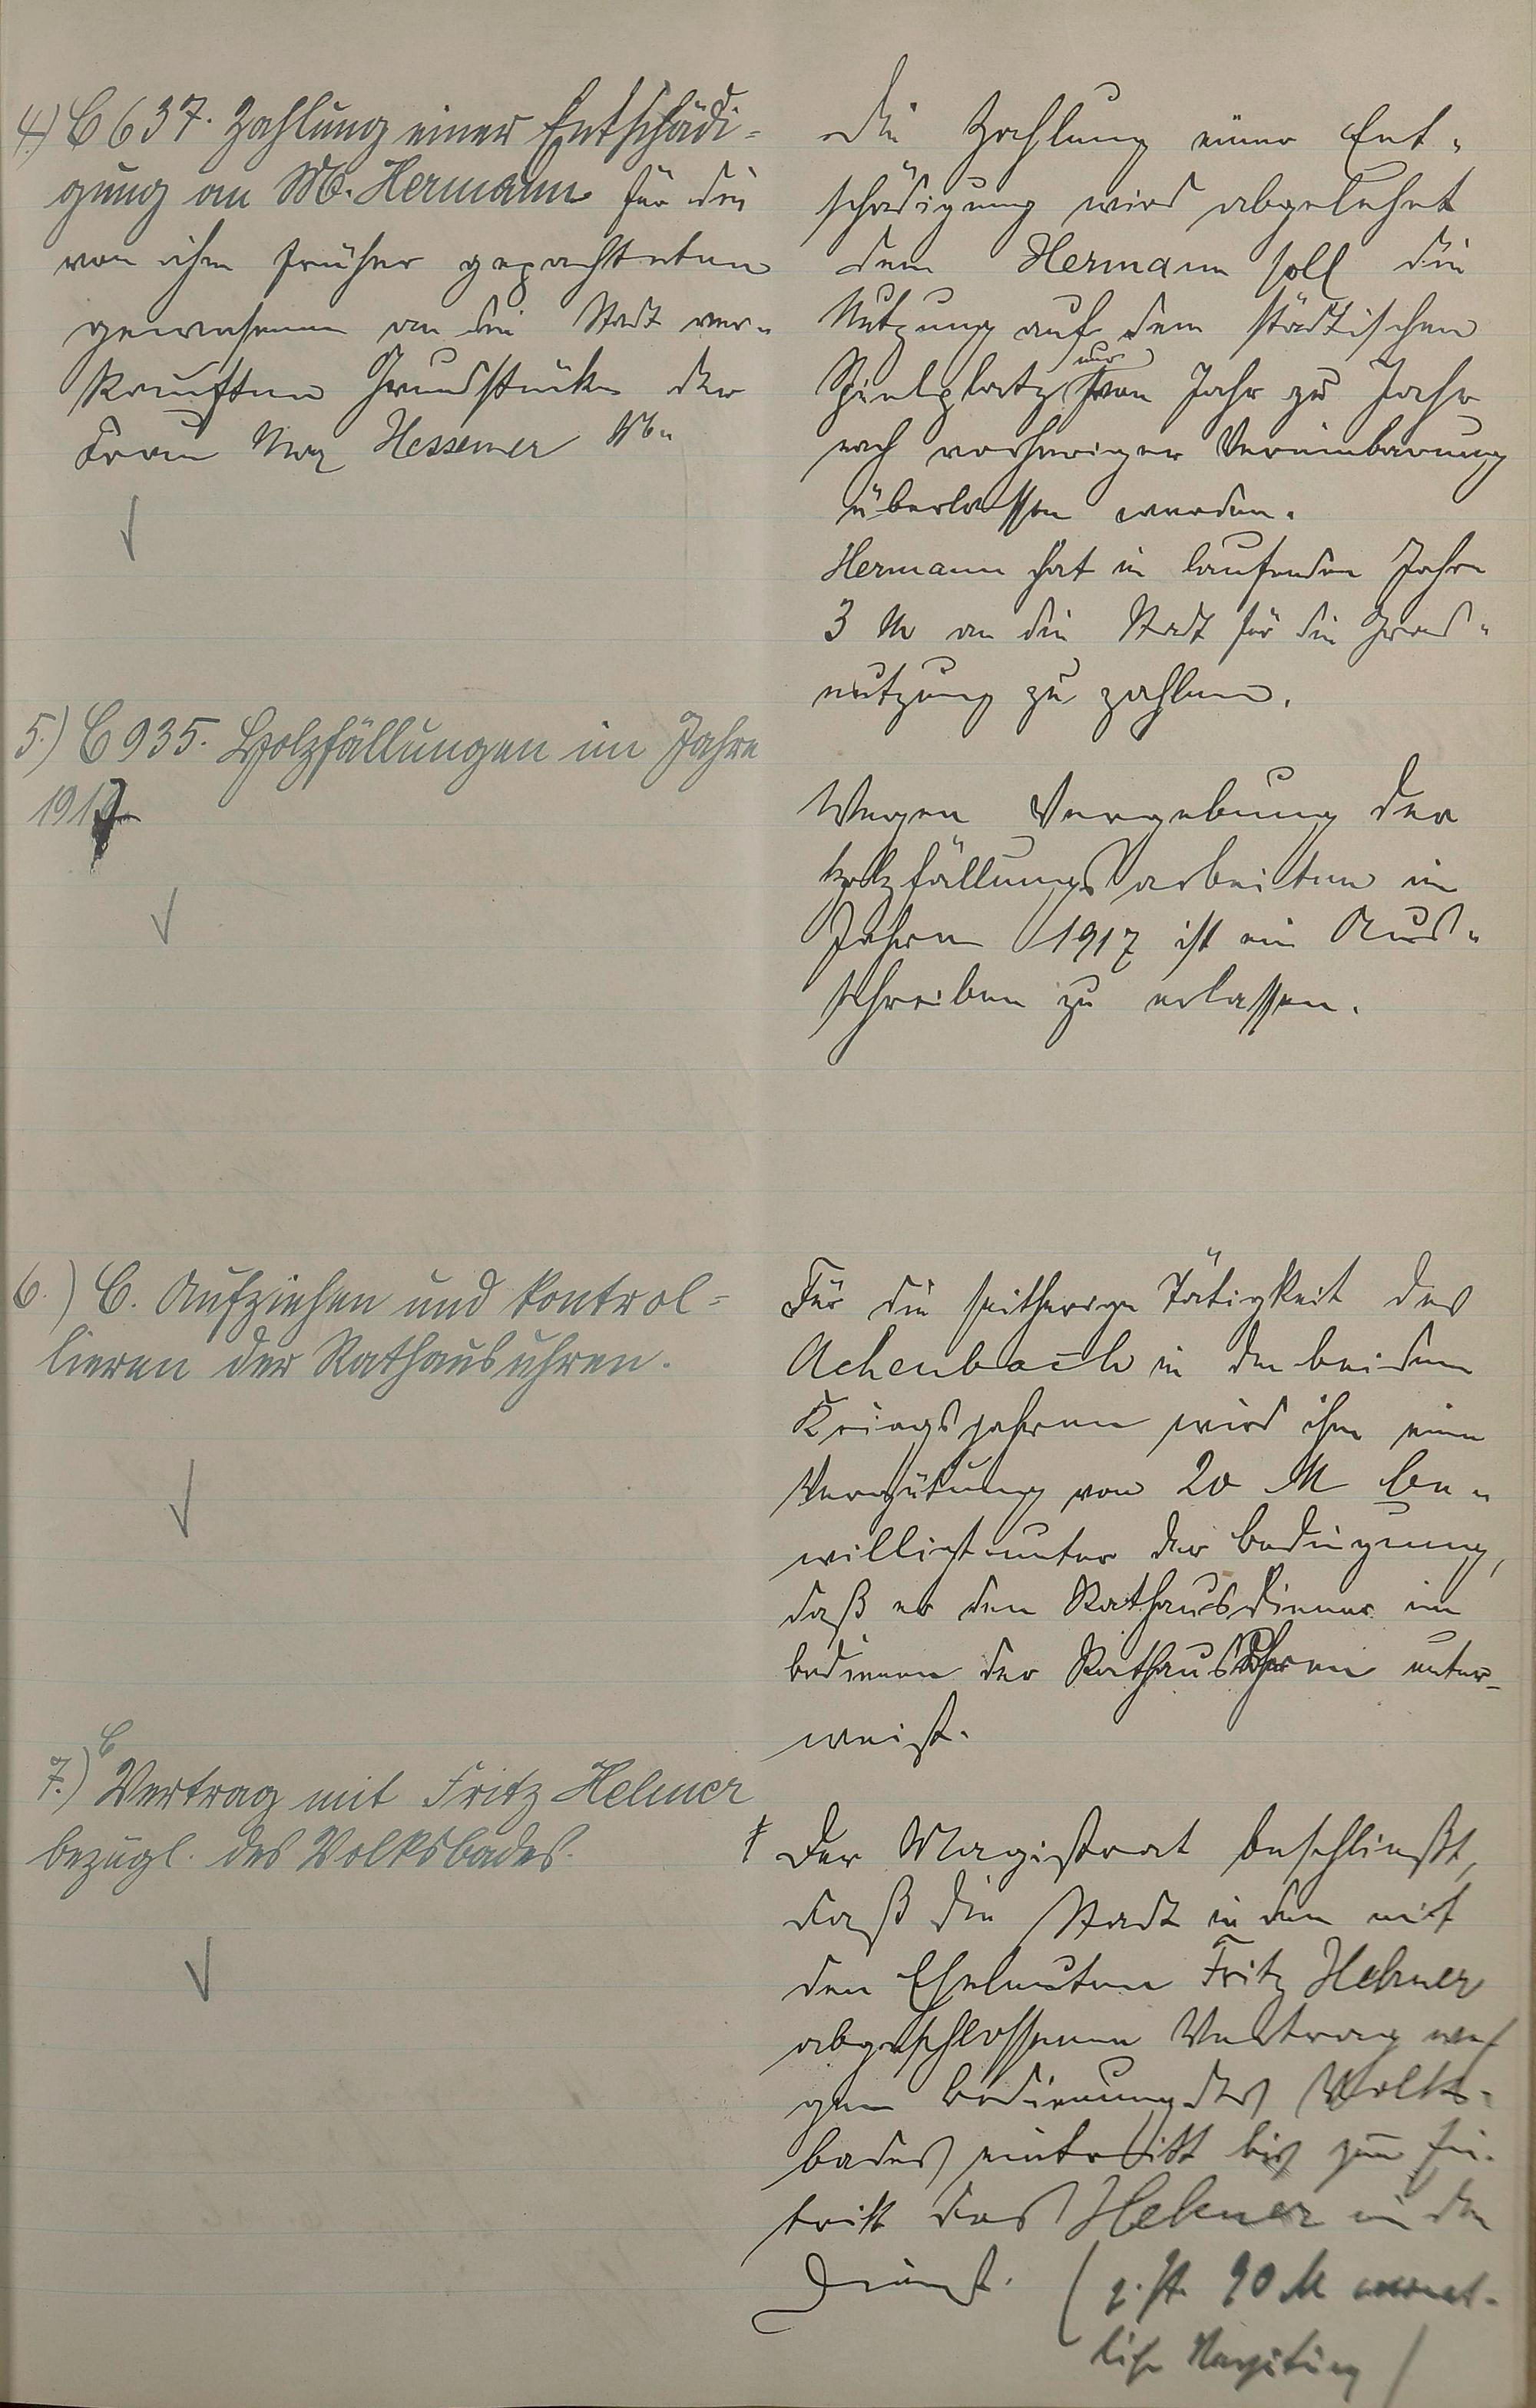 4.) C 637. Zahlung einer Entschädi=
gung an M. Hermann für die
von ihm früher gepachteten
gewesenen an die Stadt ver-
kauften Grundstücke der
Frau Max Hessemer Ww.
Die Zahlung einer Ent-
schädigung wird abgelehnt
dem Hermann soll die
Nutzung auf dem städtischen
Spielplatz nur von Jahr zu Jahr
nach vorheriger Vereinbarung
überlassen werden.
Hermann hat in laufenden Jahre
3 M an die Stadt für die Gras-
nutzung zu zahlen.
5.) C 935. Holzfällungen im Jahre
1917
Wegen Vergebung der
Holzfällungsarbeiten im
Jahre 1917 ist ein Aus-
schreiben zu erlassen.
6.) C. Aufziehen und Kontrol=
lieren der Rathausuhren.
Für die seitherige Tätigkeit des
Achenbach in den beiden
Kriegsjahren wird ihm eine
Vergütung von 20 M be-
willigt unter der Bedingung,
daß er den Rathausdiener im
bedienen der Rathausuhren unter-
weist.
7.) C Vertrag mit Fritz Helmer
bezügl. des Volksbades.
Der Magistrat beschließt,
daß die Stadt in den mit
den Eheleuten Fritz Helmer
abgeschlossenen Vertrag we-
gen Bedienung des Volks-
bades eintritt bis zum Ein-
tritt des Helmer in den
Dienst. (g. st. 90 M monat-
liche Vergütung)